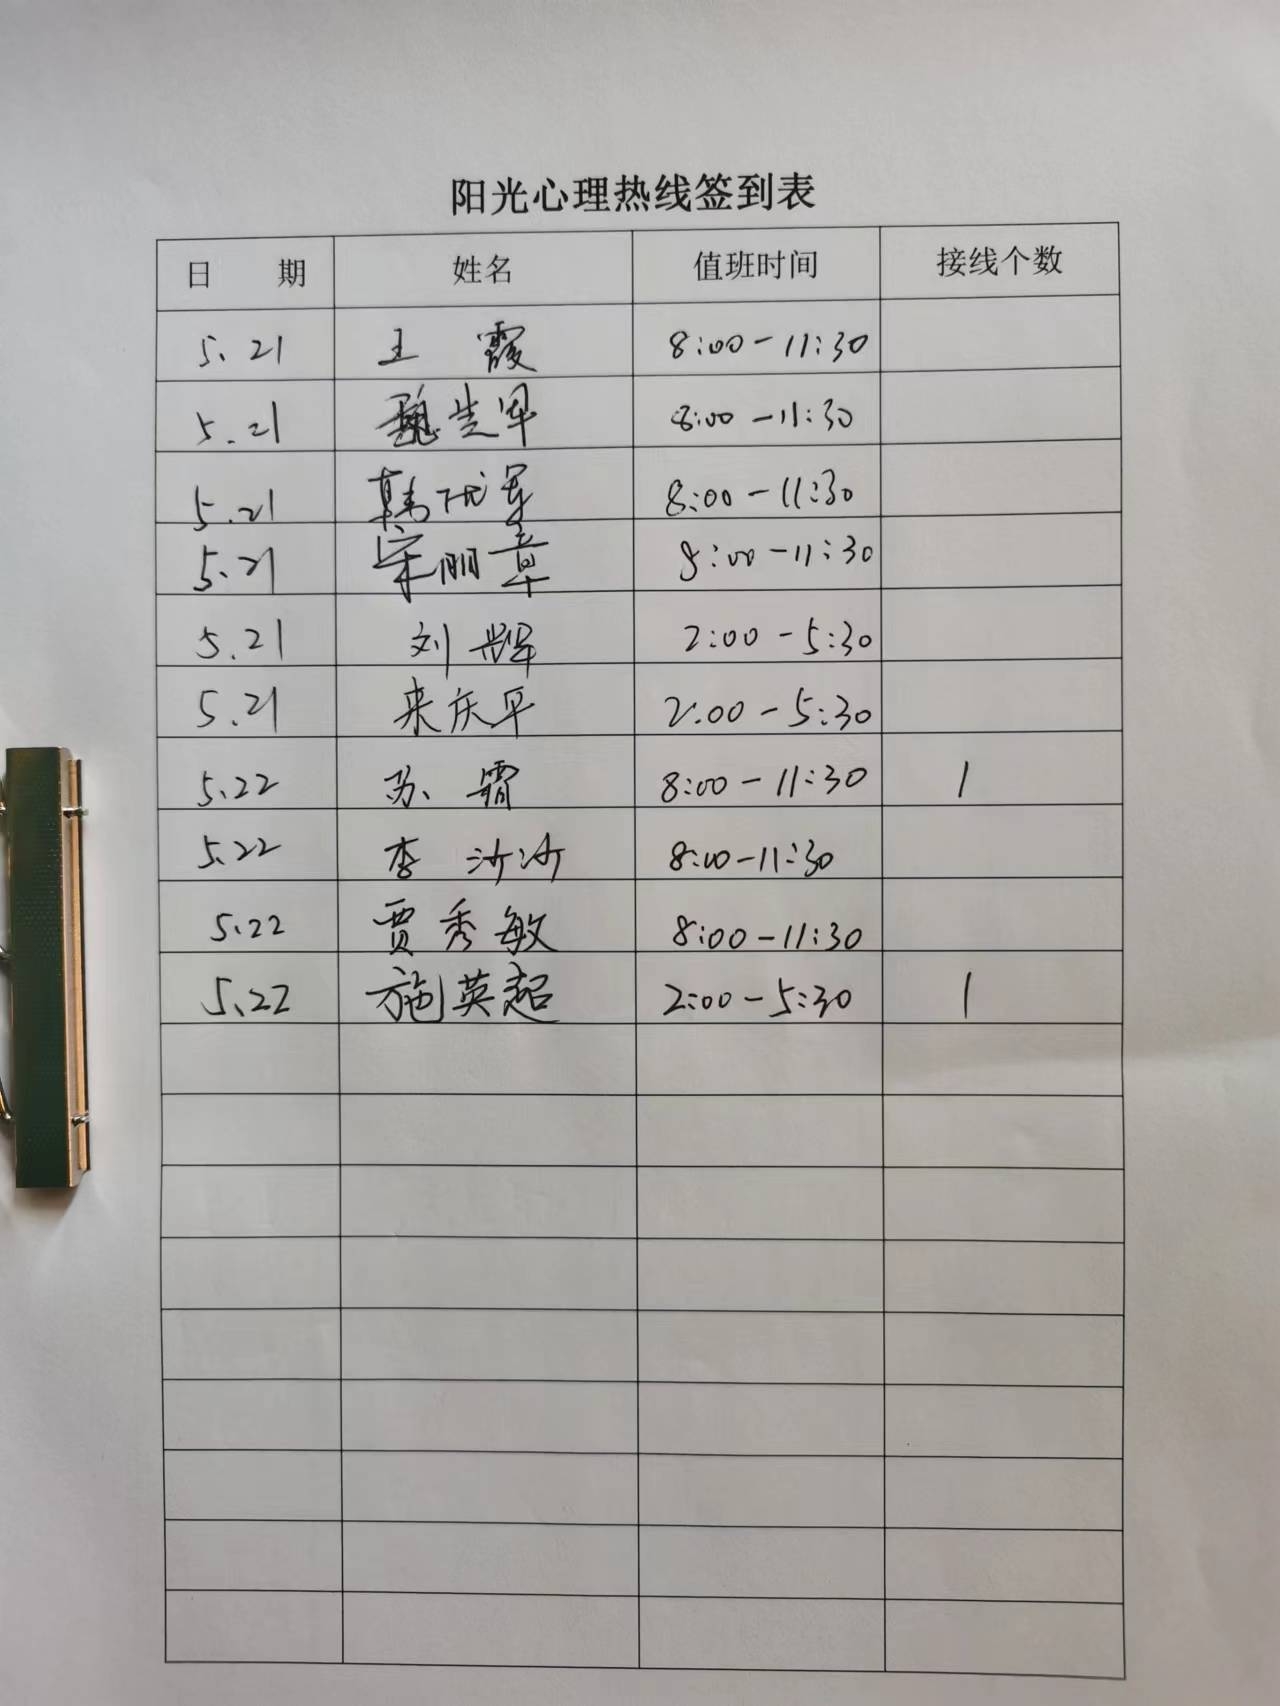 阳光心理热线签到表
日 期 姓名 值班时间 接线个数
5.21 王 霞 8:00-11:30
5.21 8:00-11:30
5.21 韩 8:00-11:30
5.21 宋丽章 8:00-11:30
5.21 刘辉 2:00-5:30
5.21 来庆平 2:00-5:30
5.22 苏 霜 8:00-11:30 1
5.22 李沙沙 8:00-11:30
5.22 贾秀敏 8:00-11:30
5.22 施英超 2:00-5:30 1